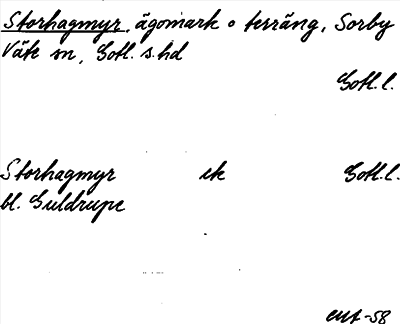 Storhagmyr, ägomark o terräng, Sorby
Väte sn, Gotl. s. hd
Gotl. l.
Storhagmyr ek Gotl. l.
bl. Guldrupe